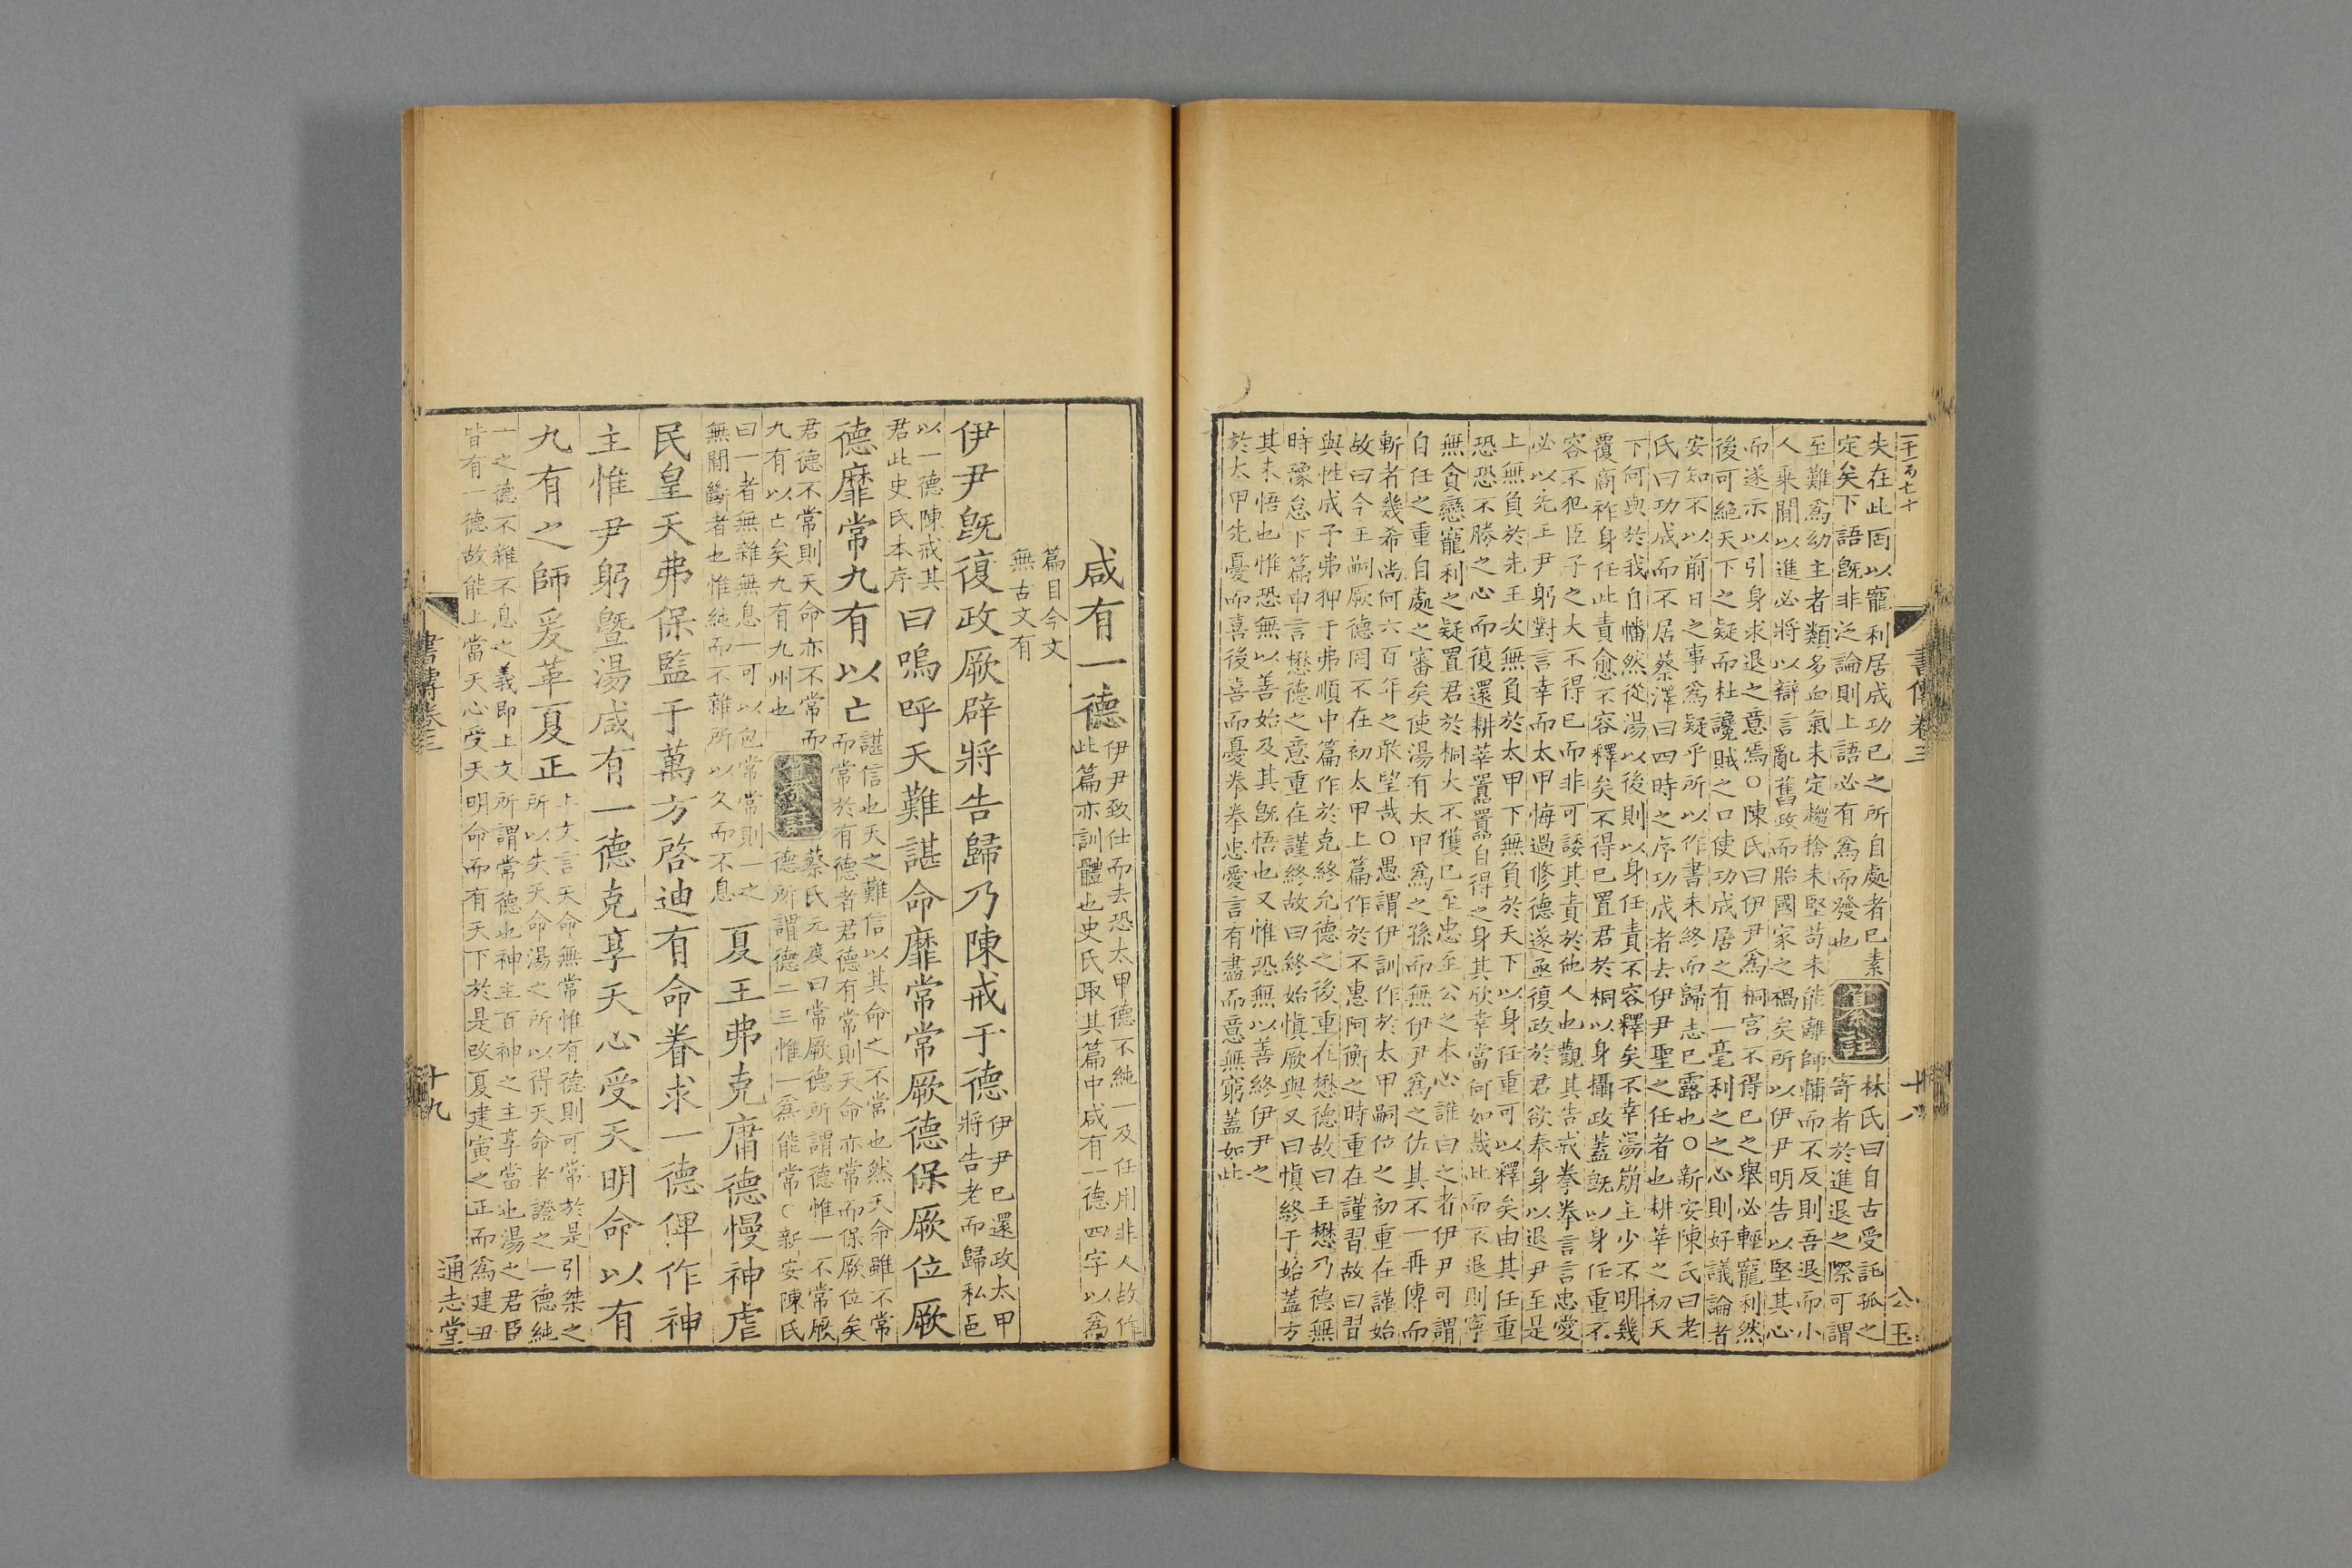 書傳卷三
十八
公玉
夫在此罔以寵利居成功已之所自處者已素 集註 林氏曰自古受託孤之
定矣下語旣非泛論則上語必有爲而發也 寄者於進退之際可謂
至難爲幼主者類多血氣未定趨捨未堅苟未能離師輔而不反則吾退而小
人乘間以進必將以辯言亂舊政而胎國家之禍矣所以伊尹明告以堅其心
而遂示以引身求退之意焉○陳氏曰伊尹爲桐宮不得已之舉必輕寵利然
後可絕天下之疑而杜讒賊之口使功成居之有一毫利之之心則好議論者
安知不以前日之事爲疑乎所以作書未終而歸志已露也○新安陳氏曰老
氏曰功成而不居蔡澤曰四時之序功成者去伊尹聖之任者也耕莘之初天
下何與於我自幡然從湯以後則以身任責不容釋矣不幸湯崩主少不明幾
覆商祚身任此責愈不容釋矣不得已置君於桐以身攝政蓋旣以身任重不
容不犯臣子之大不得已而非可諉其責於他人也觀其告戒拳拳言言忠愛
必以先王尹躬對言幸而太甲悔過修德遂亟復政於君欲奉身以退尹至是
上無負於先王次無負於太甲下無負於天下以身任重可以釋矣由其任重
恐恐不勝之心而復還耕莘囂囂自得之身其欣幸當何如哉此而不退則寧
無貪戀寵利之疑置君於桐大不獲已至忠至公之本心誰白之者伊尹可謂
自任之重自處之審矣使湯有太甲爲之孫而無伊尹爲之佐其不一再傳而
斬者幾希尚何六百年之敢望哉○愚謂伊訓作於太甲嗣位之初重在謹始
故曰今王嗣厥德罔不在初太甲上篇作於不惠阿衡之時重在謹習故曰習
與性成予弗狎于弗順中篇作於克終允德之後重在懋德故曰王懋乃德無
時豫怠下篇申言懋德之意重在謹終故曰終始愼厥與又曰愼終于始蓋方
其未悟也惟恐無以善始及其旣悟也又惟恐無以善終伊尹之
於太甲先憂而喜後喜而憂拳拳忠愛言有盡而意無窮蓋如此
咸有一德
伊尹致仕而去恐太甲德不純一及任用非人故作
此篇亦訓體也史氏取其篇中咸有一德四字以爲
篇目今文
無古文有
伊尹旣復政厥辟將告歸乃陳戒于德
伊尹已還政太甲
將告老而歸私邑
以一德陳戒其
君此史氏本序
曰嗚呼天難諶命靡常常厥德保厥位厥
德靡常九有以亡
諶信也天之難信以其命之不常也然天命雖不常
而常於有德者君德有常則天命亦常而保厥位矣
君德不常則天命亦不常而
九有以亡矣九有九州也
集註
蔡氏元度曰常厥德所謂德惟一不常厥
德所謂德二三惟一爲能常○新安陳氏
曰一者無雜無息一可以包常常則一之
無間斷者也惟純而不雜所以久而不息
夏王弗克庸德慢神虐
民皇天弗保監于萬方啓迪有命眷求一德俾作神
主惟尹躬曁湯咸有一德克享天心受天明命以有
九有之師爰革夏正
上文言天命無常惟有德則可常於是引桀之
所以失天命湯之所以得天命者證之一德純
一之德不雜不息之義即上文所謂常德也神主百神之主享當也湯之君臣
皆有一德故能上當天心受天明命而有天下於是改夏建寅之正而爲建丑
書傳卷三
十九
通志堂